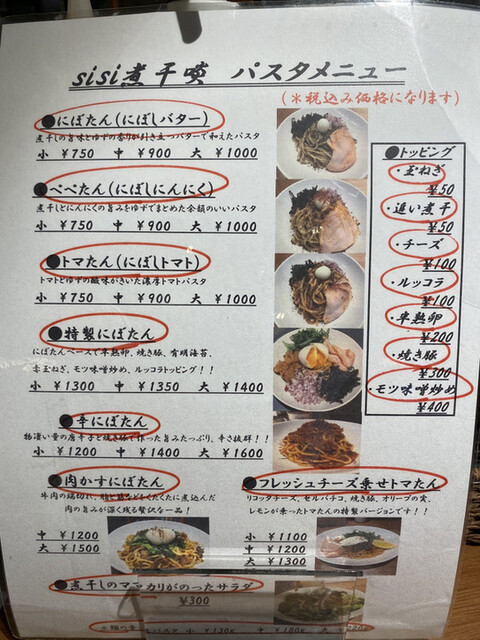 sisi煮干啖 パスタメニュー
(＊税込み価格になります)
●にぼたん(にぼしバター)
煮干しの旨味とゆずの香りが引き立つバターで和えたパスタ
小 ¥750 中 ¥900 大 ¥1000
●ペペたん(にぼしにんにく)
煮干しとにんにくの旨みをゆずでまとめた余韻のいいパスタ
小 ¥750 中 ¥900 大 ¥1000
●トマたん(にぼしトマト)
トマトとゆずの酸味がきいた濃厚トマトパスタ
小 ¥750 中 ¥900 大 ¥1000
●特製にぼたん
にぼたんベースで半熟卵、焼き豚、有明海苔、
赤玉ねぎ、モツ味噌炒め、ルッコラトッピング！！
小 ¥1300 中 ¥1350 大 ¥1400
●辛にぼたん
物凄い量の唐辛子と焼き豚で作った旨みたっぷり、辛さ抜群！！
小 ¥1200 中 ¥1400 大 ¥1600
●肉かすにぼたん
牛肉の端切れ、
くたくたに煮込んだ
肉の旨みが深く残る贅沢な一品！
中 ¥1200
大 ¥1500
●フレッシュチーズ乗せトマたん
リコッタチーズ、セルバチコ、焼き豚、オリーブの実、
レモンが乗ったトマたんの特製バージョンです！！
小 ¥1100
中 ¥1200
大 ¥1300
●煮干しのマ カリがのったサラダ
¥300
パスタ 小 130g 中 180g 大
●トッピング
・玉ねぎ
¥50
・追い煮干
¥50
・チーズ
¥100
・ルッコラ
¥100
・半熟卵
¥200
・焼き豚
¥300
・モツ味噌炒め
¥400